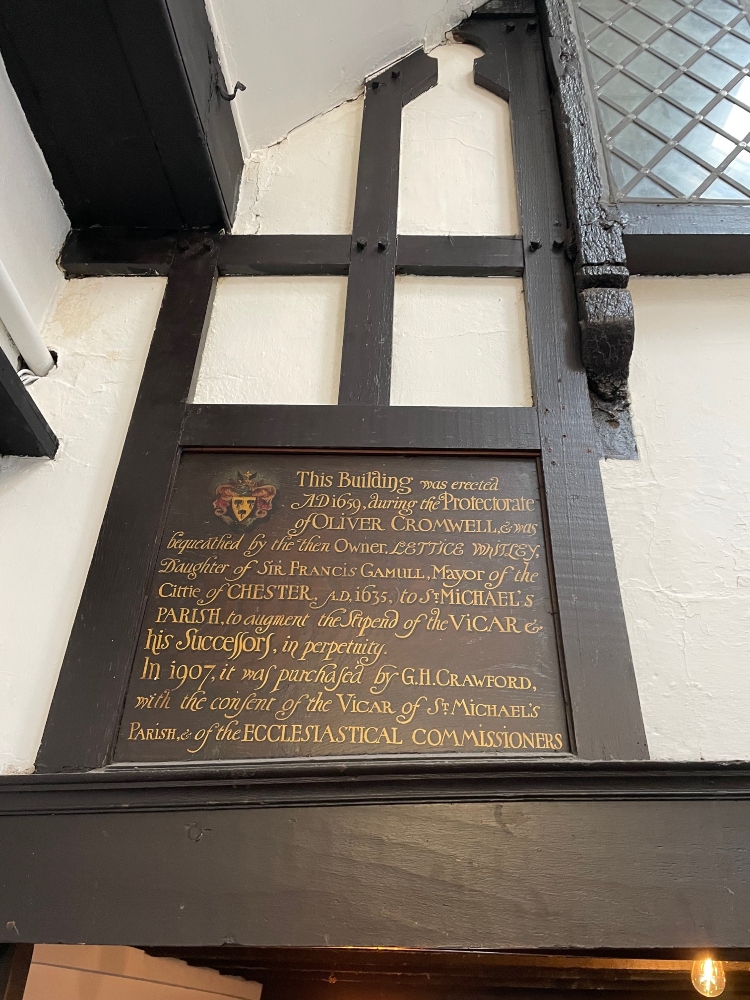 This Building was erected
A.D 1659, during the Protectorate
of OLIVER CROMWELL, & was
bequeathed by the then Owner, LETTICE WHITLEY,
Daughter of SIR FRANCIS GAMULL, Mayor of the
Cittie of CHESTER, A.D. 1635, to ST MICHAEL'S
PARISH, to augment the Stipend of the VICAR &
his Successors, in perpetuity.
In 1907, it was purchased by G.H. CRAWFORD,
with the consent of the VICAR of ST MICHAEL'S
PARISH, & of the ECCLESIASTICAL COMMISSIONERS